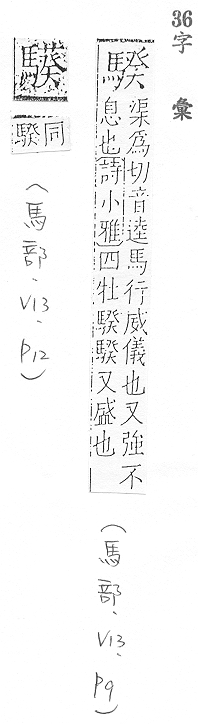 36字彙
騤 渠為切音逵馬行威儀也又強不
息也詩小雅四牡騤騤又盛也
(馬部、V13、P9)
騤
騤同
(馬部、V13、P12)